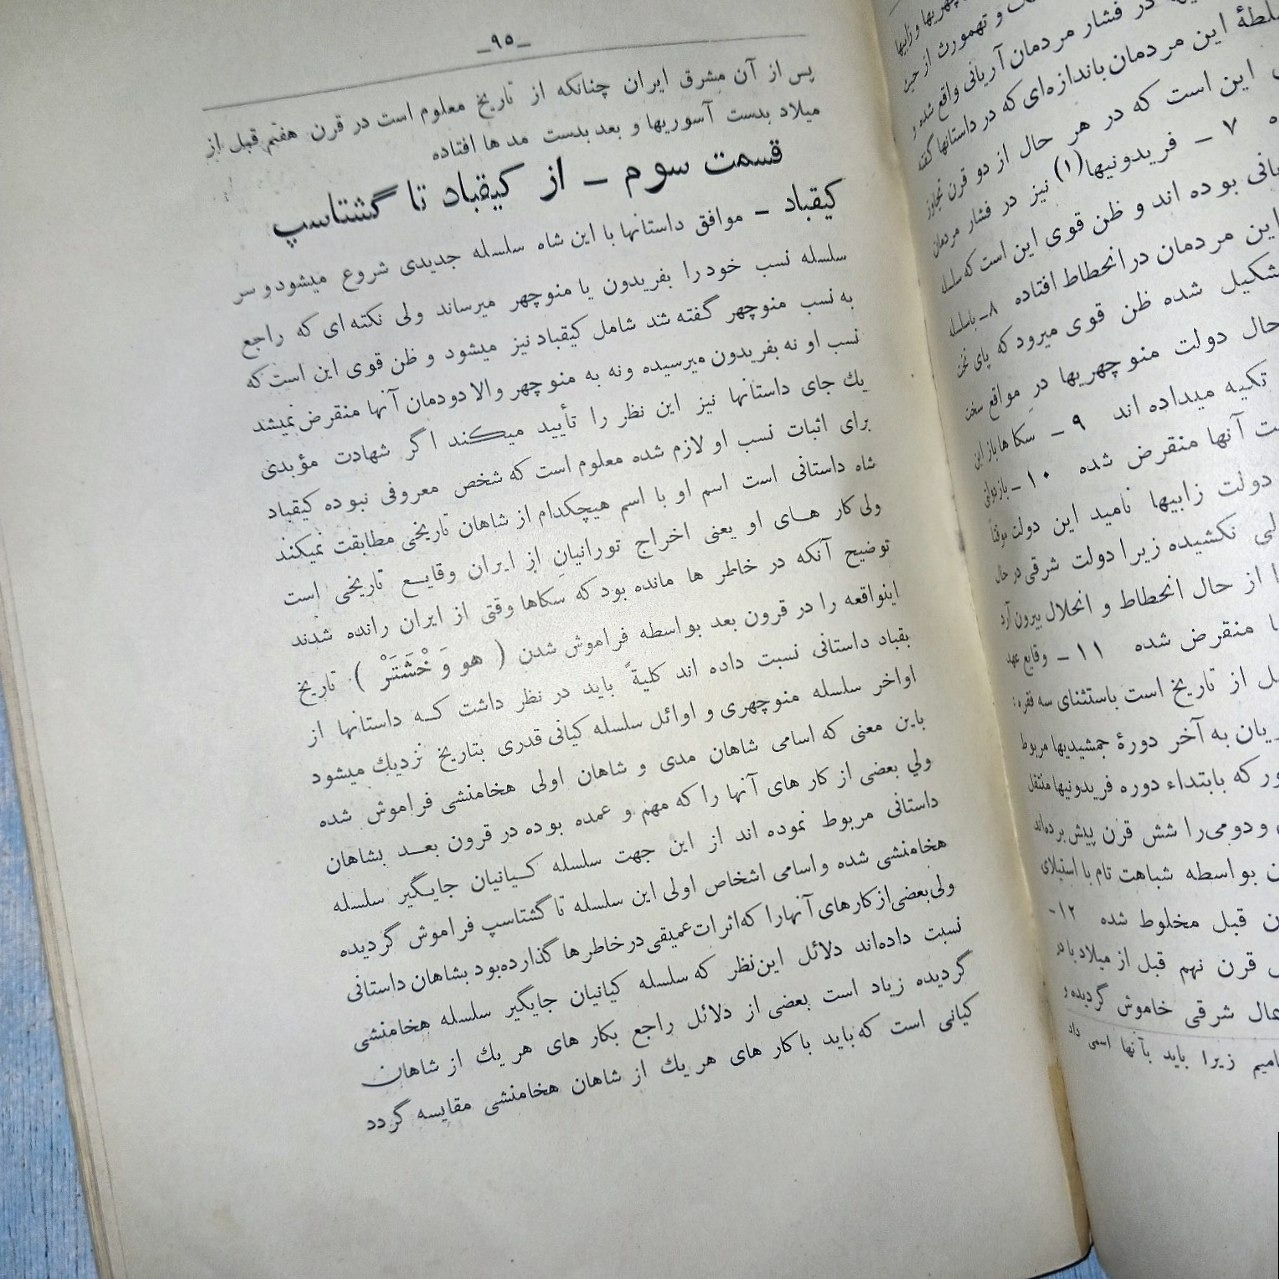 ـ٩٥ـ
پس از آن مشرق ایران چنانکه از تاریخ معلوم است در قرن هفتم قبل از
میلاد بدست آسوریها و بعد بدست مدها افتاده
قسمت سوم ـ از کیقباد تا گشتاسپ
کیقباد ـ موافق داستانها با این شاه سلسله جدیدی شروع میشود و سر
سلسله نسب خود را بفریدون یا منوچهر میرساند ولی نکته ای که راجع
به نسب منوچهر گفته شد شامل کیقباد نیز میشود و ظن قوی این است که
نسب او نه بفریدون میرسیده ونه به منوچهر والا دودمان آنها منقرض نمیشد
یك جای داستانها نیز این نظر را تأیید میکند اگر شهادت مؤبدی
برای اثبات نسب او لازم شده معلوم است که شخص معروفی نبوده کیقباد
شاه داستانی است اسم او با اسم هیچکدام از شاهان تاریخی مطابقت نمیکند
ولی کار های او یعنی اخراج تورانیان از ایران وقایع تاریخی است
توضیح آنکه در خاطر ها مانده بود که سکاها وقتی از ایران رانده شدند
اینواقعه را در قرون بعد بواسطه فراموش شدن ( هو وَ خْشَتَرْ ) تاریخ
بقباد داستانی نسبت داده اند کلیةً باید در نظر داشت که داستانها از
اواخر سلسله منوچهری و اوائل سلسله کیانی قدری بتاریخ نزدیك میشود
باین معنی که اسامی شاهان مدی و شاهان اولی هخامنشی فراموش شده
ولی بعضی از کار های آنها را که مهم و عمده بوده در قرون بعد بشاهان
داستانی مربوط نموده اند از این جهت سلسله کیانیان جایگیر سلسله
هخامنشی شده و اسامی اشخاص اولی این سلسله تا گشتاسپ فراموش گردیده
ولی بعضی از کارهای آنها را که اثرات عمیقی در خاطرها گذارده بود بشاهان داستانی
نسبت داده‌اند دلائل این نظر که سلسله کیانیان جایگیر سلسله هخامنشی
گردیده زیاد است بعضی از دلائل راجع بکار های هر یك از شاهان
کیانی است که باید با کار های هر یك از شاهان هخامنشی مقایسه گردد
و تهمورث از حیث
در فشار مردمان آریانی واقع شده و
این مردمان باندازه‌ای که در داستانها گفته
این است که در هر حال از دو قرن تجاوز
٧ ـ فریدونیها (١) نیز در فشار مردمان
بوده اند و ظن قوی این است که سلسله
این مردمان در انحطاط افتاده ٨ـ باسلسله
شده ظن قوی میرود که پای تخت
حال دولت منوچهریها در مواقع سخت
تکیه میداده اند ٩ ـ سکاها باز این
آنها منقرض شده ١٠ـ
دولت زابیها نامید این دولت موقتاً
نکشیده زیرا دولت شرقی در حال
از حال انحطاط و انحلال بیرون آرد
منقرض شده ١١ ـ وقایع عهد
از تاریخ است باستثنای سه فقره :
به آخر دورهٔ جمشیدیها مربوط
که بابتداء دوره فریدونیها منتقل
و دومی را شش قرن پیش برده‌اند
بواسطه شباهت تام با استیلای
قبل مخلوط شده ١٢ـ
قرن نهم قبل از میلاد با در
شرقی خاموش گردیده و
زیرا باید بآنها اسمی داد